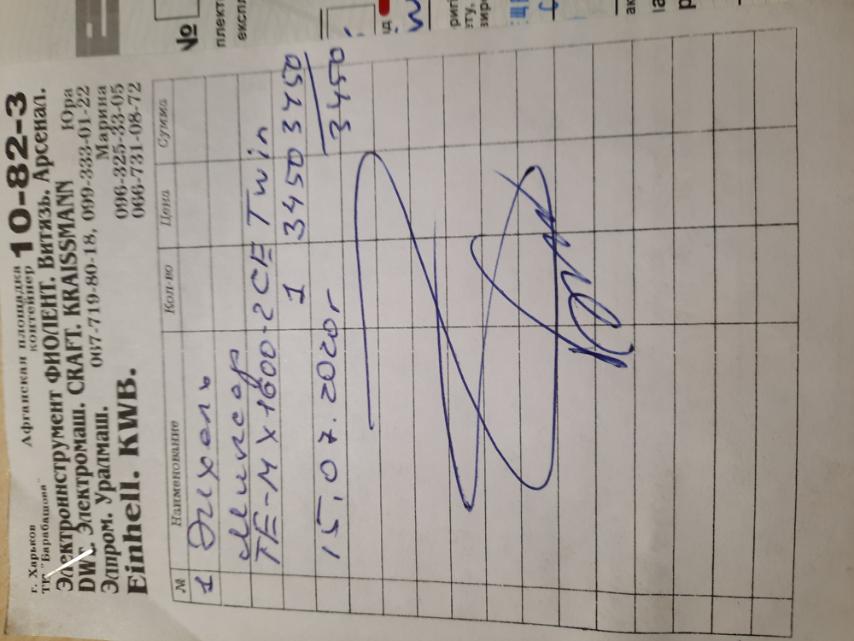 г. Харьков Афганская площадка
ТК "Барабашова" контейнер 10-82-3
Электроинструмент ФИОЛЕНТ. Витязь. Арсенал.
DWT. Электромаш. CRAFT. KRAISSMANN Юра
Элпром. Уралмаш. 067-719-80-18, 099-333-01-22
Марина
Einhell. KWB. 096-325-33-05
066-731-08-72
№ Наименование Кол-во Цена Сумма
1 Энхель
Миксер
TE-MX1600-2CE Twin
1 3450 3450
15.07.2020г 3450
№